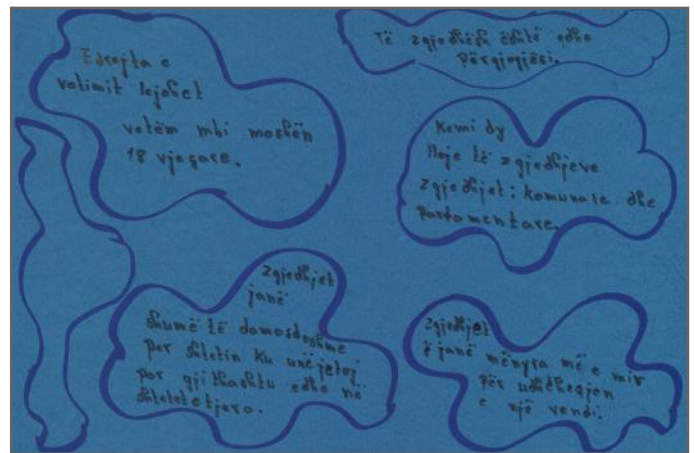 E drejta e
votimit lejohet
vetëm mbi moshën
18 vjeçare.
Të zgjedhësh është edhe
përgjegjësi.
Kemi dy
lloje të zgjedhjeve
zgjedhjet: komunale dhe
Parlamentare.
Zgjedhjet
janë
shumë të domosdoshme
për shtetin ku unë jetoj
por gjithashtu edhe në
shtetet tjera.
Zgjedhjet
janë mënyra më e mir
për udhëheqjen
e një vendi.